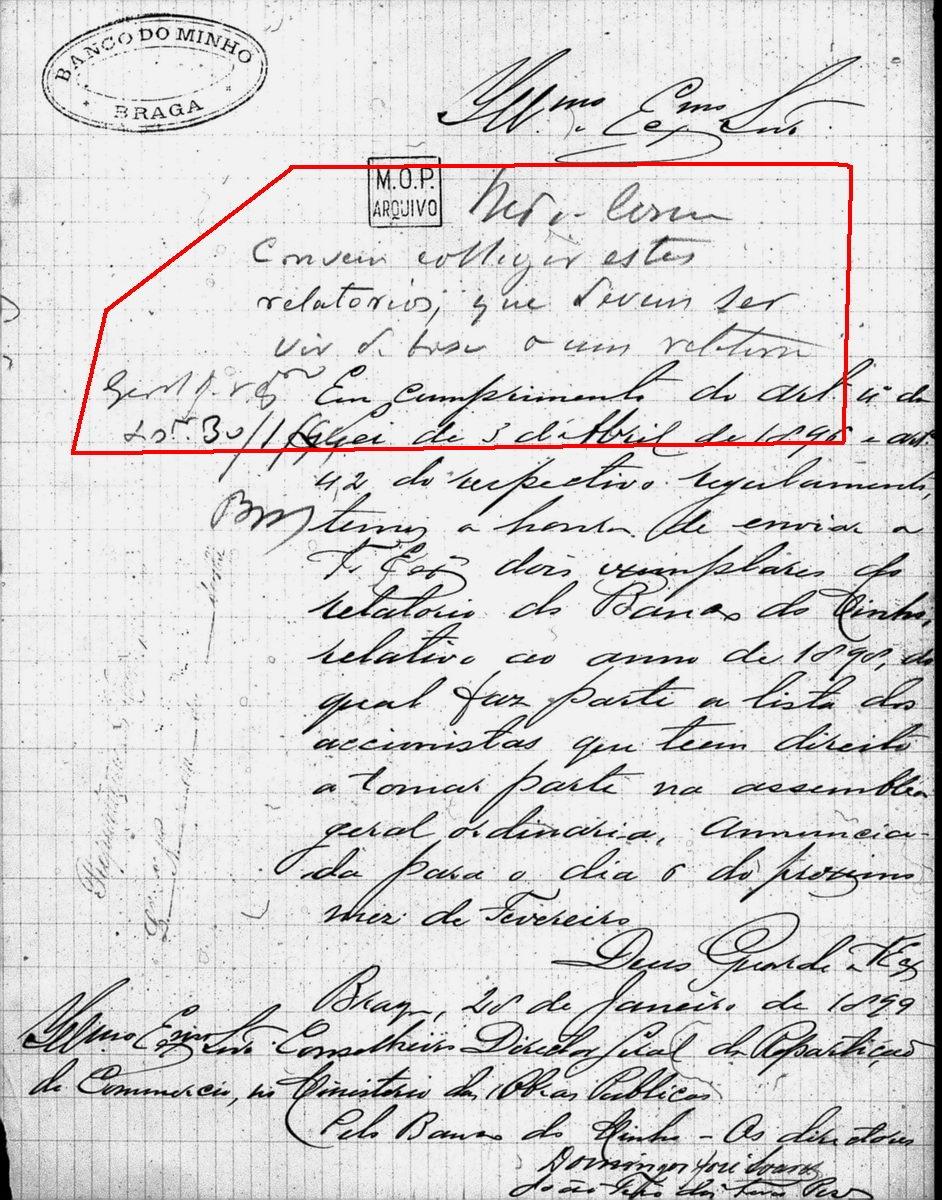 BANCO DO MINHO
BRAGA
Illmo e Exmo Snr.
M.O.P.
ARQUIVO
Convem colligir estes
relatorios, que devem ser
vir de base a um
30/1/99
Em cumprimento do art. 4 da
Lei de 3 d'Abril de 1896 e art.
42 do respectivo regulamento,
temos a honra de enviar a
V. Exa dois exemplares do
relatorio do Banco do Minho,
relativo ao anno de 1898, do
qual faz parte a lista dos
accionistas que teem direito
a tomar parte na assemblea
geral ordinaria, annuncia-
da para o dia 6 do proximo
mez de Fevereiro
Deus Guarde a V. Exa
Braga, 28 de Janeiro de 1899
Illmo e Exmo Snr. Conselheiro Director Geral da Repartição
de Commercio, no Ministerio das Obras Publicas
Pelo Banco do Minho - Os directores
Domingos José Soares
João